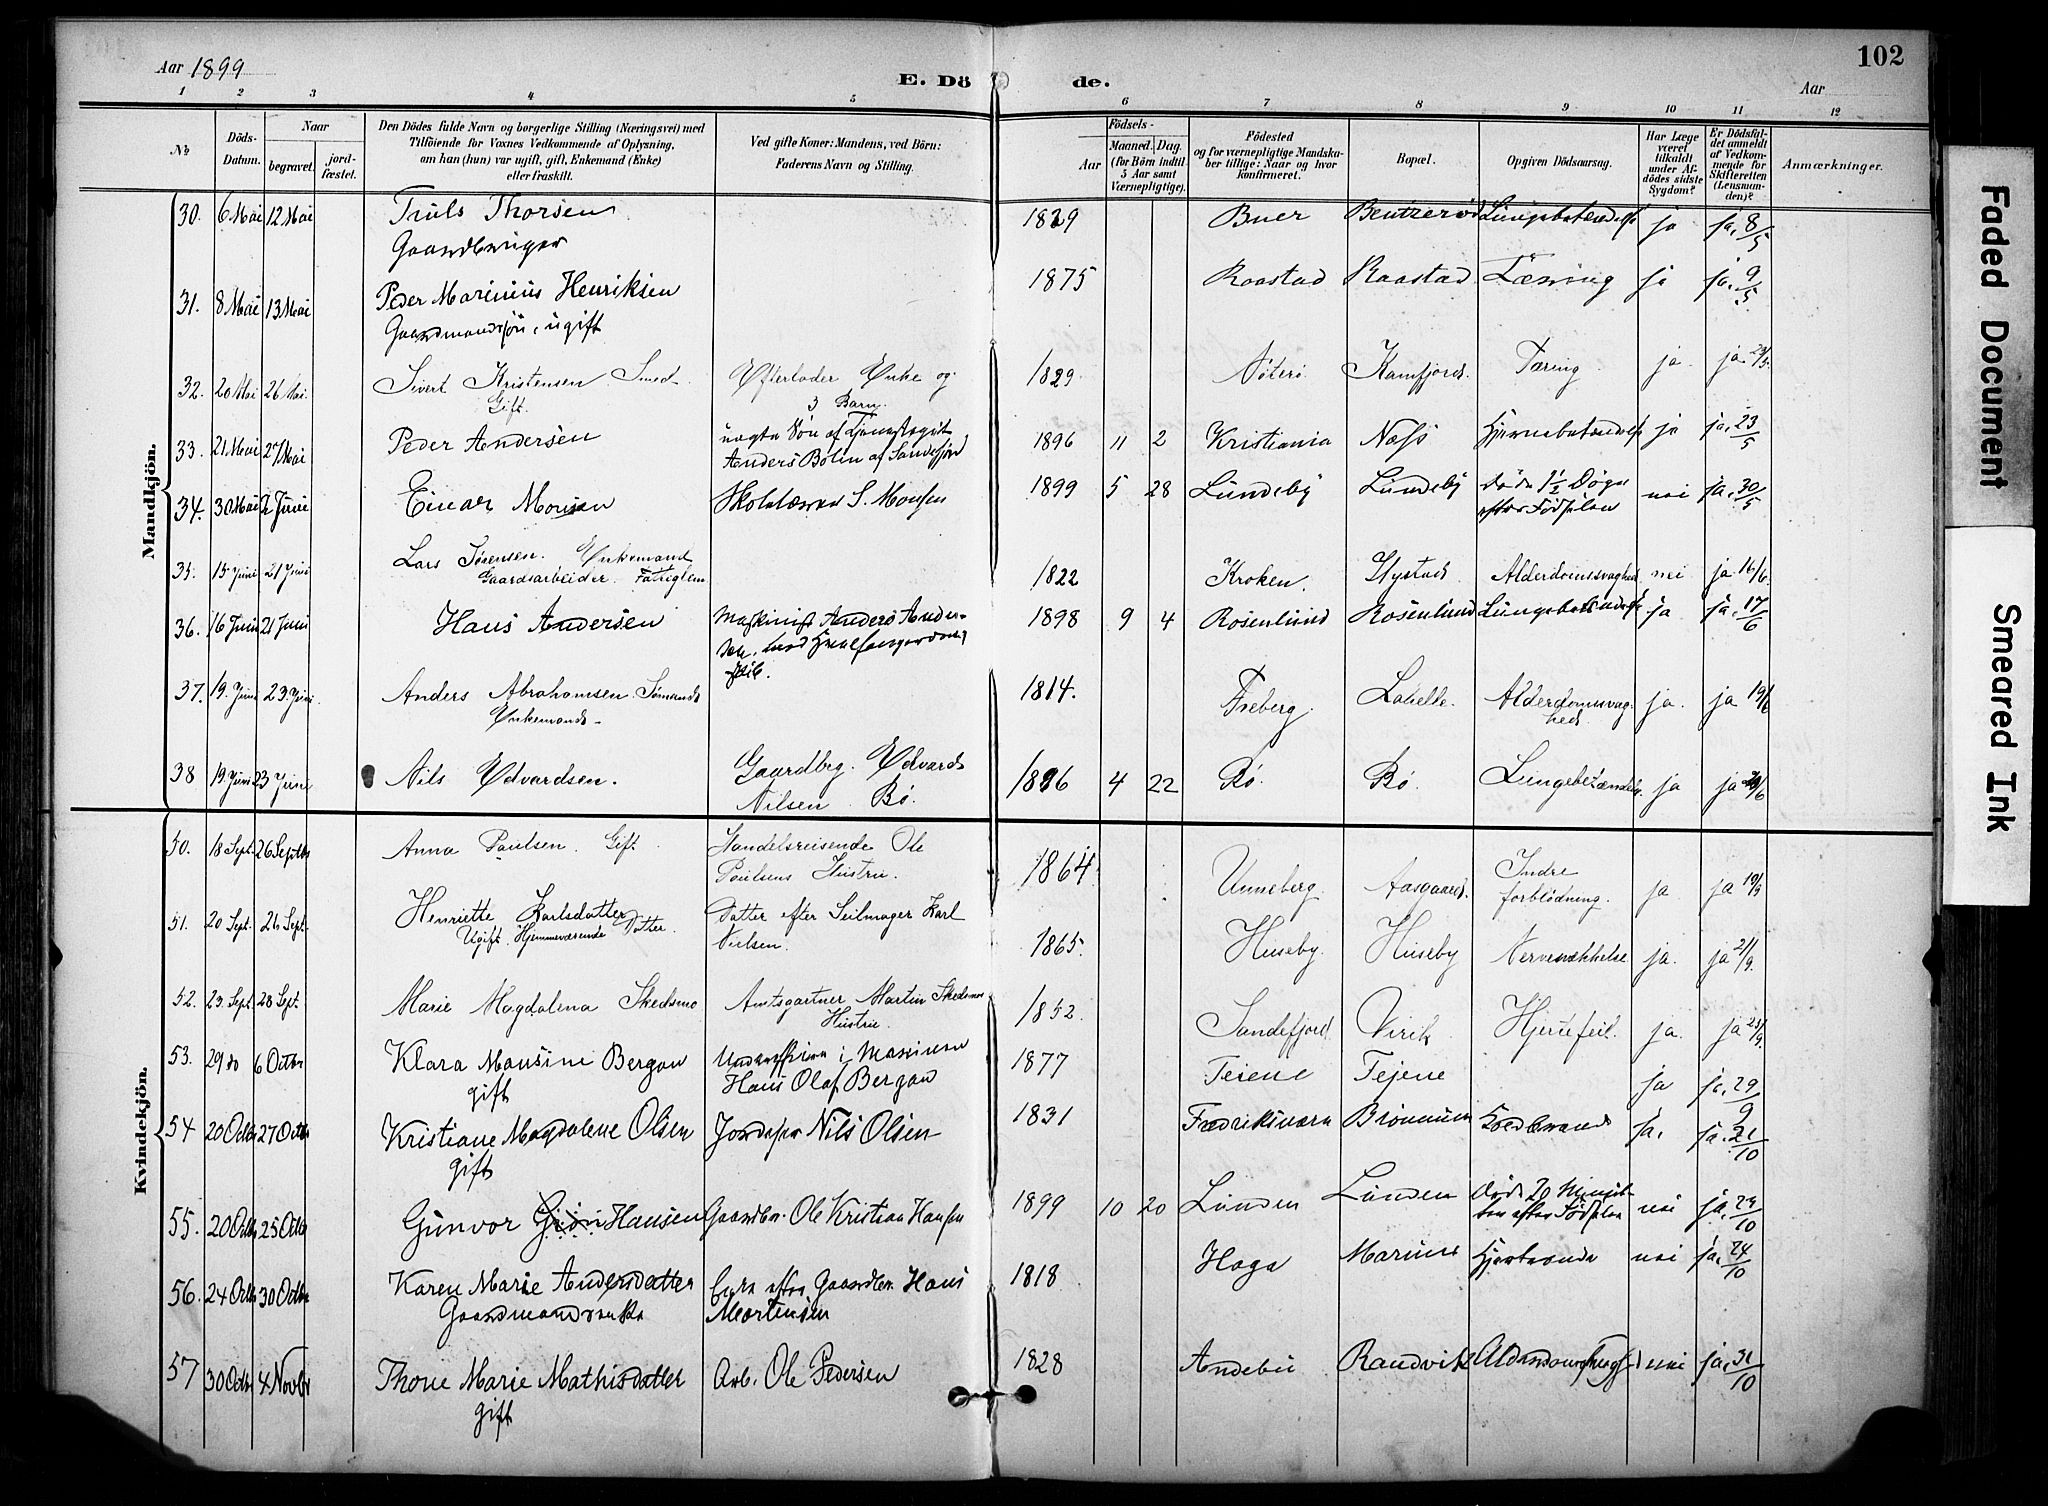 102
Aar 1899
E. Dö de.
Aar
1 2 3 4 5 6 7 8 9 10 11 12
№
Döds-Datum.
Naar
begravet.
jord-fæstet.
Den Dödes fulde Navn og borgerlige Stilling (Næringsvei) med
Tilföiende for Voxnes Vedkommende af Oplysning,
om han (hun) var ugift, gift, Enkemand (Enke)
eller fraskilt.
Ved gifte Koner: Mandens, ved Börn:
Faderens Navn og Stilling.
Födsels-
Aar
Maaned. Dag.
(for Börn indtil
5 Aar samt
Værnepligtige).
Födested
og for værnepligtige Mandska-
ber tillige: Naar og hvor
konfirmeret.
Bopæl.
Opgiven Dödsaarsag.
Har Læge
været
tilkaldt
under Af-
dödes sidste
Sygdom?
Er Dödsfal-
det anmeldt
af Vedkom-
mende for
Skifteretten
(Lensman-
den)?
Anmærkninger.
Mandkjön.
30. 6 Mai 12 Mai Truls Thorsen 1829 Buer Bentzerød Lungebetændelse ja ja. 8/5
Gaardbruger
31. 8 Mai 13 Mai Peder Marinius Henriksen 1875 Raastad Raastad Tæring ja ja. 9/5
Gaardmandssøn, ugift
32. 20 Mai 26 Mai. Sivert Kristensen. Smed. Efterlader Enke og 1829 Nøterø Kamfjord. Tæring. ja. ja.
Gift. 3 Barn.
33. 21 Mai 27 Mai Peder Andersen uægte Søn af 1896 11 2 Kristiania Næss Hjernebetændelse ja ja. 23/5
Anders Bolin af Sandefjord
34. 30 Mai 2 Juni Einar Monsen Skolelærer S. Monsen 1899 5 28 Lundeby Lundeby døde 1½ Døgn nei ja. 30/5
efter Fødselen
35. 15 Juni 21 Juni Lars Sørensen. Enkemand 1822 Kroken. Hystad. Alderdomssvaghed nei ja 16/6.
Gaardsarbeider. Fattiglem
36. 16 Juni 21 Juni Hans Andersen Maskinist Anders Ander- 1898 9 4 Rosenlund Rosenlund Lungebetændelse ja ja. 17/6
sen, med Hvalfanger
37. 19. Juni 23. Juni. Anders Abrahamsen. Sømand 1814. Freberg. Labelle. Alderdomssvag- ja. ja 19/6
Enkemand. hed.
38 19. Juni 23 Juni Nils Edvardsen. Gaardbrg. Edvard 1896 4 22 Bø. Bø. Lungebetændelse ja ja 20/6
Nilsen Bø.
Kvindekjön.
50. 18 Sept. 26 Septbr Anna Paulsen. Gift. Handelsreisende Ole 1864. Unneberg. Aasgaard. Indre ja ja 19/9
Paulsens Hustru. forblødning.
51. 20 Sept. 26 Sept. Henriette Karlsdatter Datter efter Seilmager Karl 1865. Huseby. Huseby Nervesvækkelse. ja. ja 21/9.
Ugift. Hjemmeværende Datter. Nielsen.
52. 23 Sept. 28 Sept. Marie Magdalena Skedsmo Amtsgartner Martin Skedsmos 1852. Sandefjord. Virik Hjertefeil. ja. ja 25/9.
Hustru.
53. 29 do 6 Octbr Klara Mausine Bergan i Marinen 1877 Feiene Fejene ja ja. 29/9
gift Hans Olaf Bergan
54 20 Octbr 27 Octbr Kristiane Magdalene Olsen Jordejer Nils Olsen 1831 Fredriksværn Brönnum Koldbrand ja. ja. 21/10
gift
55. 20 Octbr 25 Octbr Gunvor Hansen Gaardbr. Ole Kristian Hansen 1899 10 20 Lunden Lunden Døde 20 Minut- nei ja. 23/10
ter efter Fødselen
56. 24 Octbr 30 Octbr Karen Marie Andersdatter Enke efter Gaardbr. Hans 1818 Haga Marum nei ja. 24/10
Gaardmandsenke Mortensen
57 30 Octbr 4 Novbr Thone Marie Mathisdatter Arb. Ole Pedersen 1828 Andebu Randvik Alderdomssvagh nei ja. 31/10
gift
Faded Document
Smeared Ink